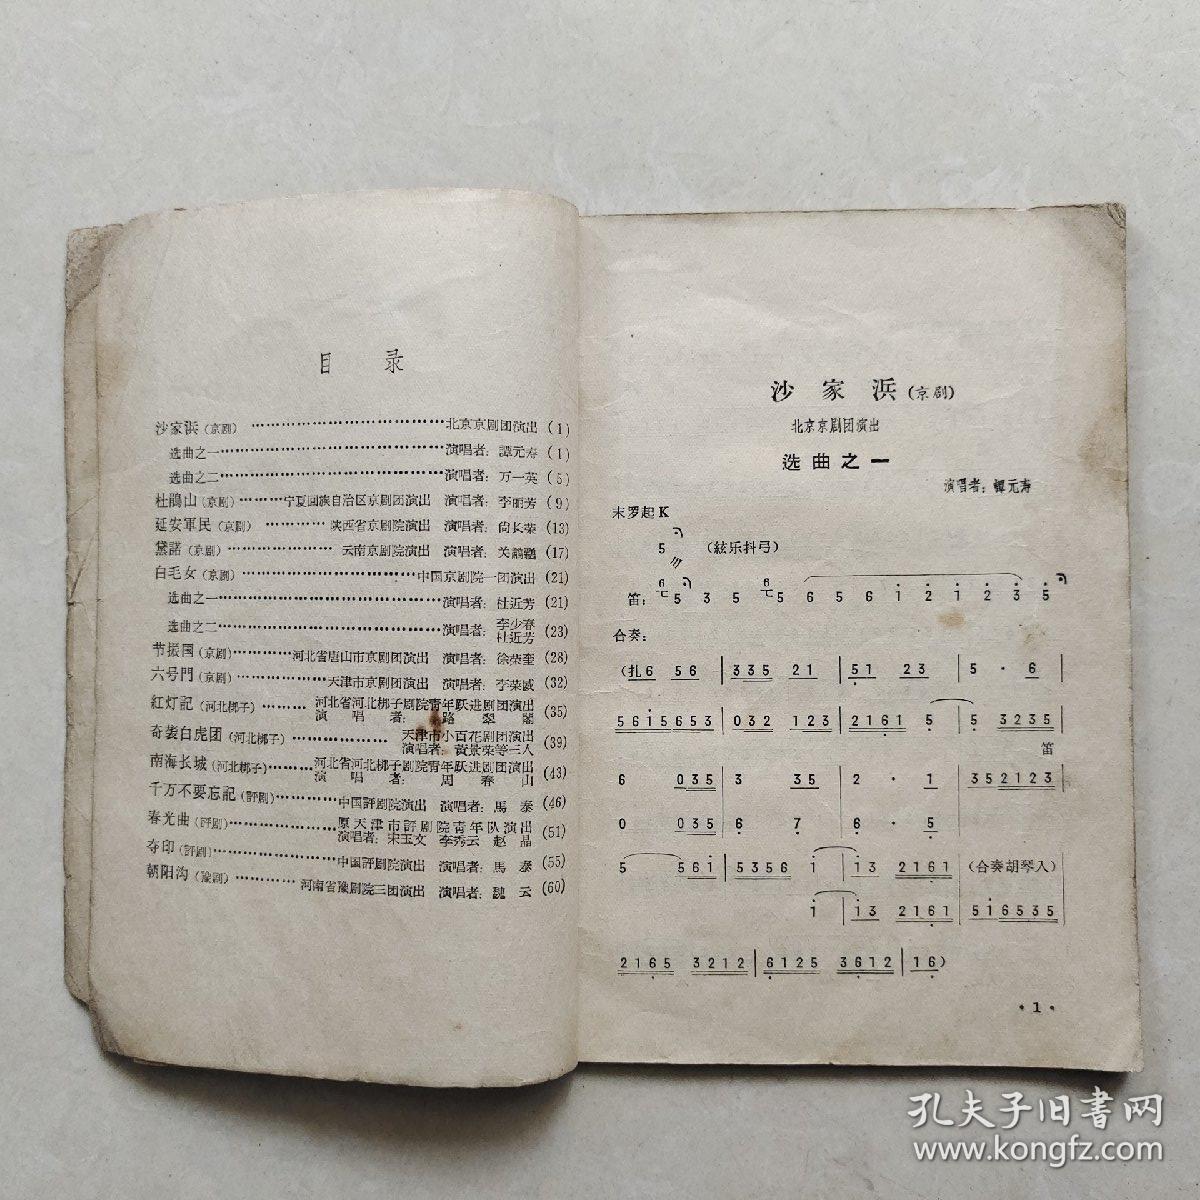 目 录
沙家浜(京剧)……………………北京京剧团演出(1)
选曲之一……………………演唱者:譚元寿(1)
选曲之二……………………演唱者:万一英(5)
杜鵑山(京剧)………宁夏回族自治区京剧团演出 演唱者:李丽芳(9)
延安軍民(京剧)…………陝西省京剧院演出 演唱者:尚长荣(13)
黛諾(京剧)……………云南京剧院演出 演唱者:关鷫鸘(17)
白毛女(京剧)……………………中国京剧院一团演出(21)
选曲之一……………………演唱者:杜近芳(21)
选曲之二……………………演唱者:李少春 杜近芳(23)
节振国(京剧)…………河北省唐山市京剧团演出 演唱者:徐荣奎(28)
六号門(京剧)……………天津市京剧团演出 演唱者:李荣威(32)
紅灯記(河北梆子)………河北省河北梆子剧院青年跃进剧团演出
演唱者:路翠閣(35)
奇袭白虎团(河北梆子)………………天津市小百花剧团演出
演唱者:黃景荣等三人(39)
南海长城(河北梆子)………河北省河北梆子剧院青年跃进剧团演出
演唱者:周春山(43)
千万不要忘記(評剧)…………中国評剧院演出 演唱者:馬泰(46)
春光曲(評剧)……………原天津市評剧院青年队演出
演唱者:宋玉文 李秀云 赵晶(51)
夺印(評剧)………………中国評剧院演出 演唱者:馬泰(55)
朝阳沟(豫剧)…………河南省豫剧院三团演出 演唱者:魏云(60)
沙家浜(京剧)
北京京剧团演出
选曲之一
演唱者:譚元寿
末罗起K
5 (絃乐抖弓)
笛: 5 3 5 5 6 5 6 1 2 1 2 3 5
合奏:
(扎6 56 | 335 21 | 51 23 | 5 · 6
5615653 | 032 123 | 2161 5 | 5 3235
笛
6 035 | 3 35 | 2 · 1 | 352123
0 035 | 6 7 | 6 · 5
5 561 | 5356 1 | 13 2161 | (合奏胡琴入)
1 | 13 2161 | 516535
2165 3212 | 6125 3612 | 16)
·1·
孔夫子旧書网
www.kongfz.com